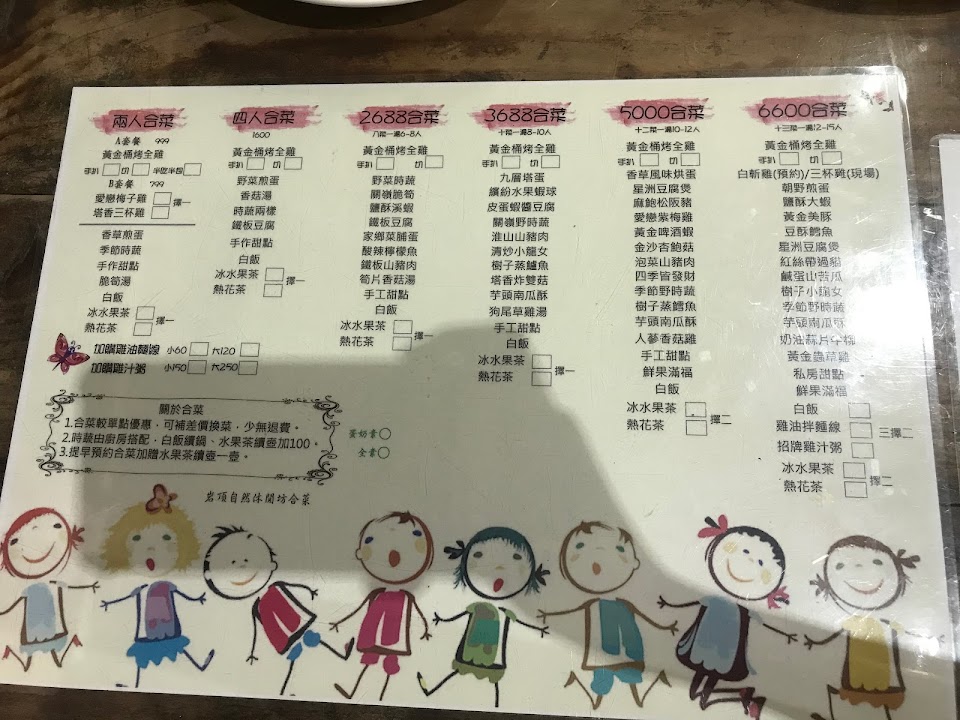 兩人合菜
A套餐 999
黃金桶烤全雞
手扒 切 半扒半包
B套餐 799
愛戀梅子雞
塔香三杯雞 擇一
香草煎蛋
季節時蔬
手作甜點
脆筍湯
白飯
冰水果茶
熱花茶 擇一
四人合菜
1600
黃金桶烤全雞
手扒 切
野菜煎蛋
香菇湯
時蔬兩樣
鐵板豆腐
手作甜點
白飯
冰水果茶
熱花茶 擇一
加購雞油麵線 小60 大120
加購雞汁粥 小150 大250
2688合菜
八菜一湯6-8人
黃金桶烤全雞
手扒 切
野菜時蔬
關嶺脆筍
鹽酥溪蝦
鐵板豆腐
家鄉菜脯蛋
酸辣檸檬魚
鐵板山豬肉
筍片香菇湯
手工甜點
白飯
冰水果茶
熱花茶 擇一
3688合菜
十菜一湯8-10人
黃金桶烤全雞
手扒 切
九層塔蛋
繽紛水果蝦球
皮蛋蝦醬豆腐
關嶺野時蔬
淮山山豬肉
清炒小龍女
樹子蒸鱸魚
塔香炸雙菇
芋頭南瓜酥
狗尾草雞湯
手工甜點
白飯
冰水果茶
熱花茶 擇一
5000合菜
十二菜一湯10-12人
黃金桶烤全雞
手扒 切
香草風味烘蛋
星洲豆腐煲
麻鮑松阪豬
愛戀紫梅雞
黃金啤酒蝦
金沙杏鮑菇
泡菜山豬肉
四季皆發財
季節野時蔬
樹子蒸鱈魚
芋頭南瓜酥
人蔘香菇雞
手工甜點
鮮果滿福
白飯
冰水果茶
熱花茶 擇二
6600合菜
十三菜一湯12-15人
黃金桶烤全雞
手扒 切
白斬雞(預約)/三杯雞(現場)
朝野煎蛋
鹽酥大蝦
黃金美豚
豆酥鱈魚
星洲豆腐煲
紅絲帶過船
鹹蛋山苦瓜
樹子小龍女
季節野時蔬
芋頭南瓜酥
奶油蒜片中梅
黃金蟲草雞
私房甜點
鮮果滿福
白飯
雞油拌麵線 三擇二
招牌雞汁粥
冰水果茶
熱花茶 擇二
關於合菜
1.合菜較單點優惠，可補差價換菜，少無退費。
2.時蔬由廚房搭配，白飯續鍋、水果茶續壺加100。
3.提早預約合菜加贈水果茶續壺一壺。
蛋奶素
全素
岩頂自然休閒坊合菜